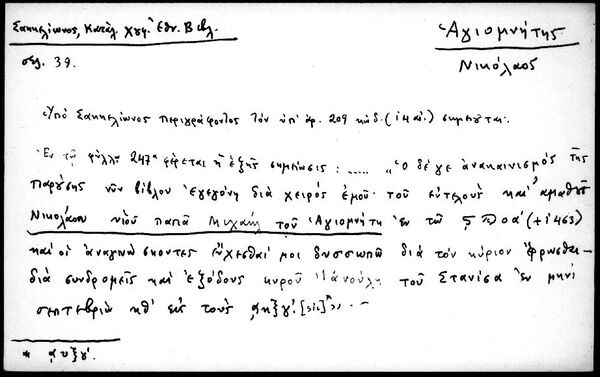 Σακκελίωνος, Κατάλ. Χγφ. Ἐθν. Βιβλ.
σελ. 39.
Ἁγιομνήτης
Νικόλαος
Ὑπὸ Σακκελίωνος περιγράφοντος τὸν ὑπ' ἀρ. 209 κώδ. (ι4 αἰ.) σημειοῦται:
Ἐν τῷ φύλλ. 247α φέρεται ἡ ἑξῆς σημείωσις: ..... "Ὁ δέ γε ἀνακαινισμὸς τῆς
παρούσης νῦν βίβλου ἐγεγόνη διὰ χειρὸς ἐμοῦ τοῦ εὐτελοῦς καὶ ἀμαθοῦς
Νικολάου υἱοῦ παπᾶ Μιχαὴλ τοῦ Ἁγιομνήτη ἐν τῷ (+1463)
καὶ οἱ ἀναγινώσκοντες εὔχεσθαί μοι δυσσωπῶ διὰ τὸν κύριον Ἔρρωσθαι-
διὰ συνδρομεῖς καὶ ἐξόδους κυροῦ Μανούλη τοῦ Στανίσα ἐν μηνὶ
σεπτεβρίω κθ' εἰς τοὺς ͵αηξγ'. [sic]*» . -
* ͵αυξγ'.